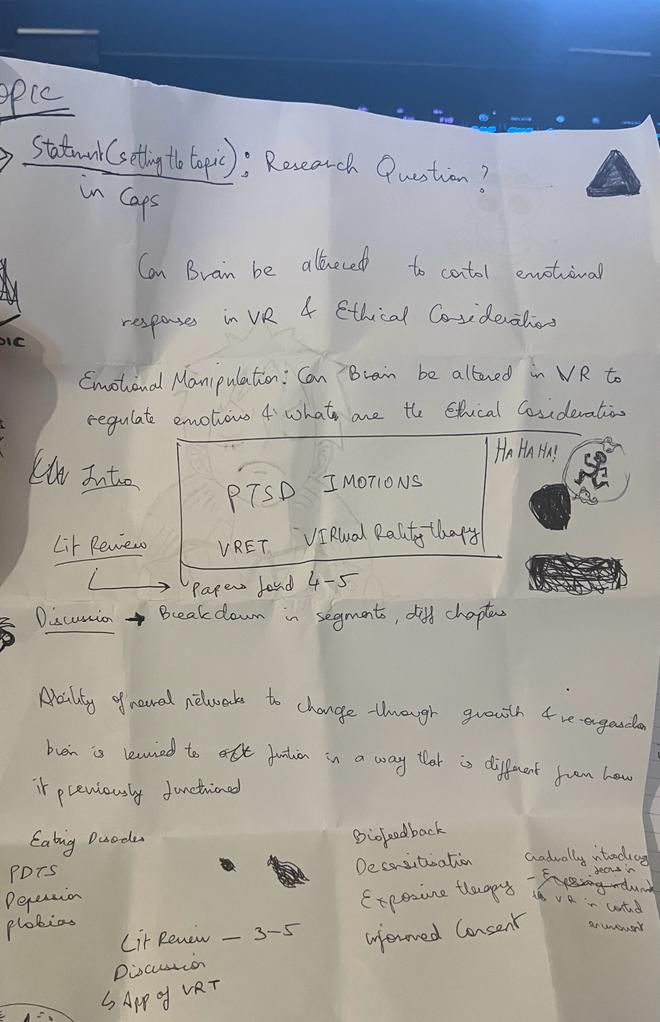 OPIC
Statment (setting the topic): Research Question?
in Caps
Can Brain be altered to contol emotional
responses in VR & Ethical Considerations
Emotional Manipulation: Can Brain be altered in VR to
regulate emotions & whats are the Ethical Cosideration
Intro
HA HA HA!
PTSD IMOTIONS
Lit Review
VRET VIRwal Rality thrapy
Papers found 4-5
Discussion → Breakdown in segments, diff chapters
Ability of neural networks to change through growth & re-
brain is to function in a way that is different from how
it previously functioned
Eating Disodes
PDTS
Depession
phobias
Biofeedback
Desensitisation
Exposure therapy
informed Consent
Gradually introducing
in
VR in
Lit Review — 3-5
Discussion
↳ App of VRT